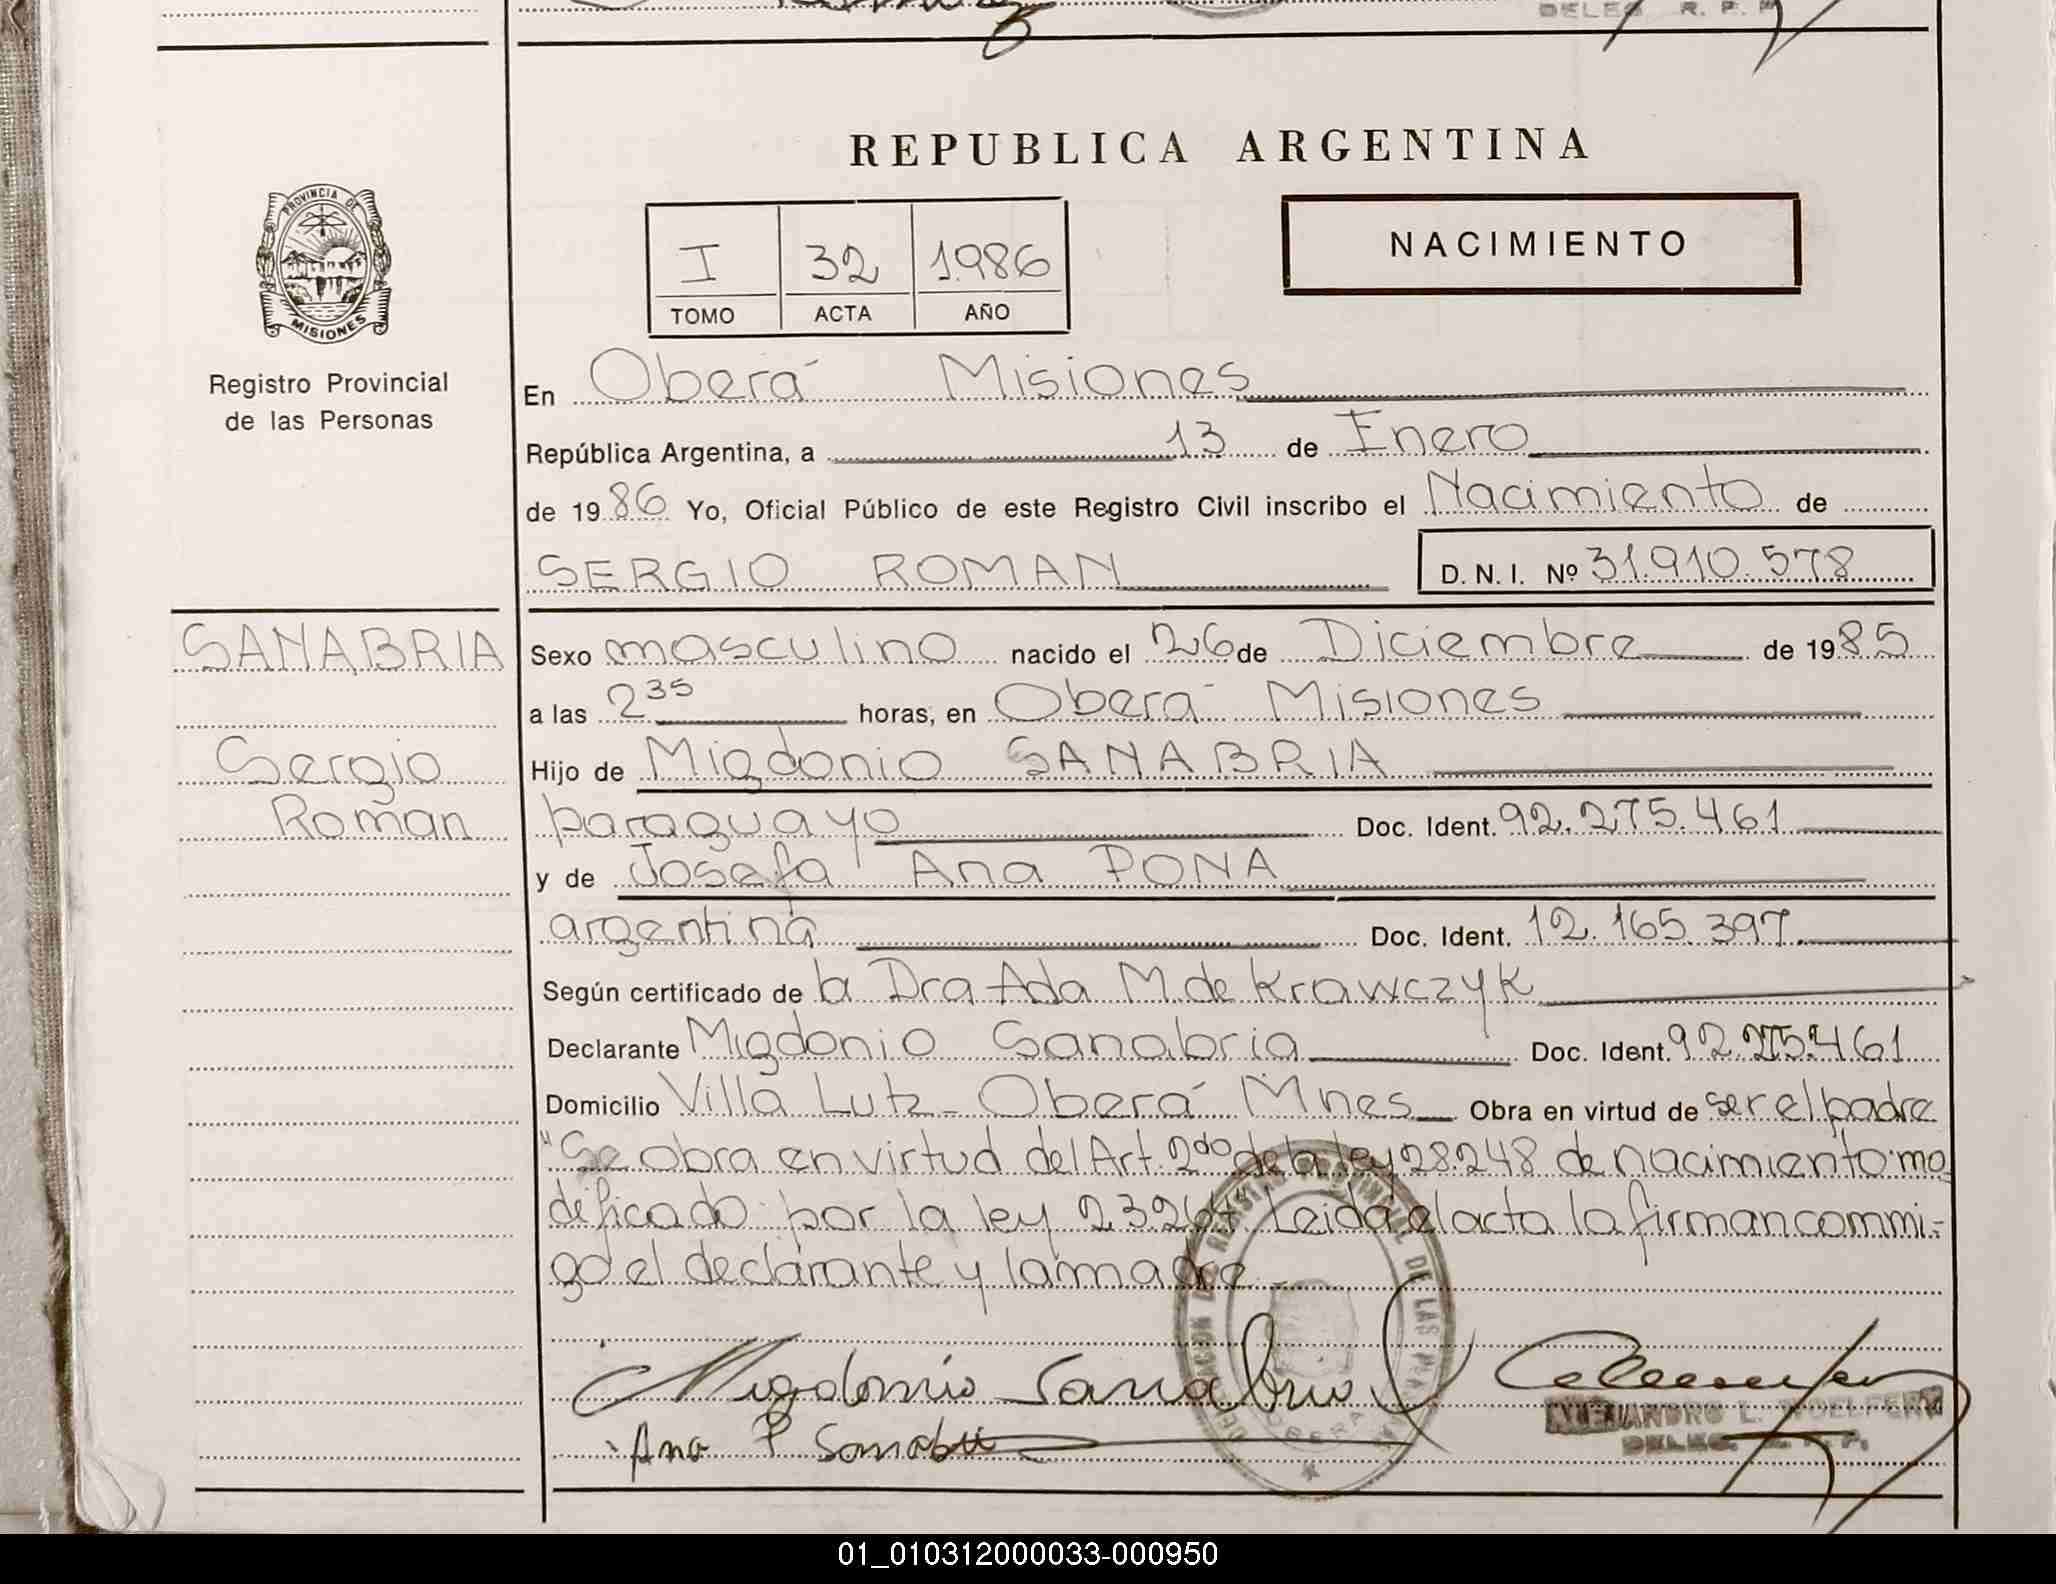 DELEG. R. P. P.
REPUBLICA ARGENTINA
PROVINCIA DE
MISIONES
Registro Provincial
de las Personas
I 32 1986
TOMO ACTA AÑO
NACIMIENTO
En Oberá Misiones
República Argentina, a 13 de Enero
de 1986 Yo, Oficial Público de este Registro Civil inscribo el Nacimiento de
SERGIO ROMAN D. N. I. Nº 31.910.578
SANABRIA
Sergio
Roman
Sexo masculino nacido el 26 de Diciembre de 1985
a las 2 35 horas, en Oberá Misiones
Hijo de Migdonio SANABRIA
paraguayo Doc. Ident. 92.275.461
y de Josefa Ana PONA
argentina Doc. Ident. 12.165.397.
Según certificado de la Dra Ada M. de Krawczyk
Declarante Migdonio Sanabria Doc. Ident. 92.275.461
Domicilio Villa Lutz - Oberá Mnes Obra en virtud de ser el padre
"Se obra en virtud del Art. 2do de la ley 28.248 de nacimiento mo
dificado por la ley 23.264" Leida el acta la firman commi-
go el declarante y la madre -
Migdonio Sanabria
Ana P Sanabria
ALEJANDRO L. WOELFERT
DELEG. R. P. P.
DELEGACION DEL REGISTRO PROVINCIAL DE LAS PERSONAS
OBERA
01_010312000033-000950